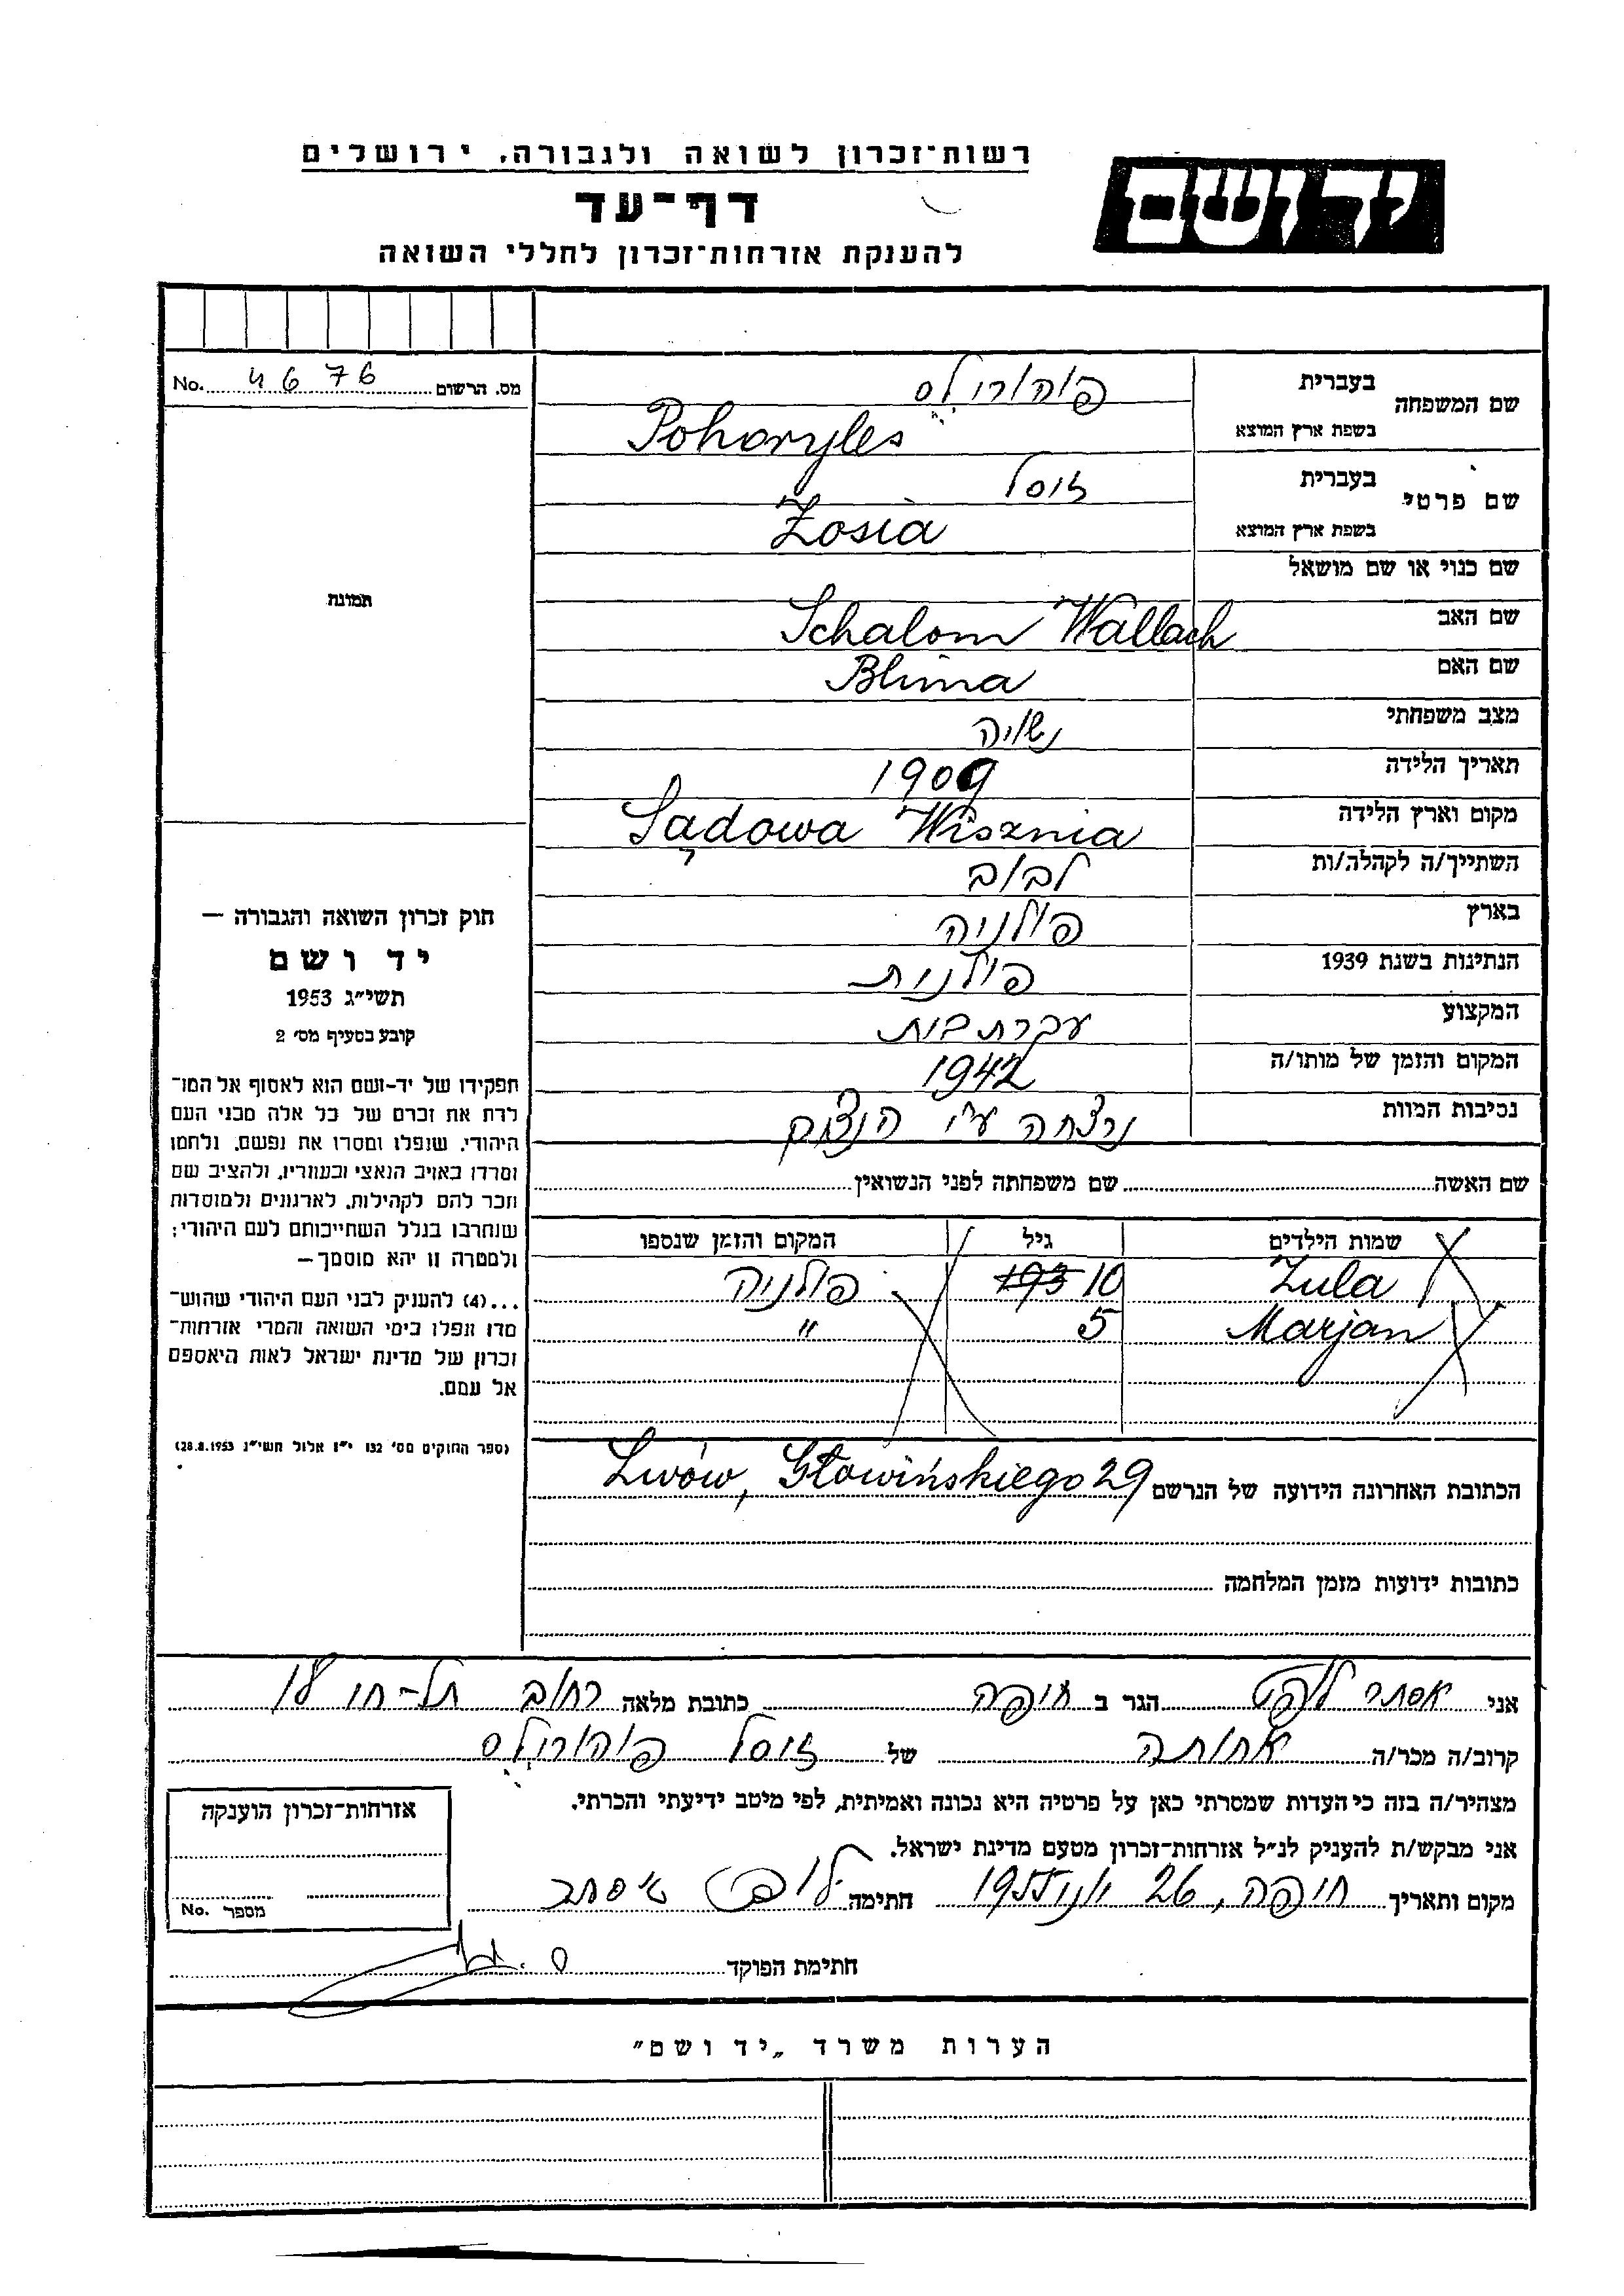 רשות־זכרון לשואה ולגבורה, ירושלים
יד ושם
דף־עד
להענקת אזרחות־זכרון לחללי השואה
מס. הרשום 4676 No.
שם המשפחה בעברית פוהורילס
בשפת ארץ המוצא Pohoryles
שם פרטי בעברית זוסל
בשפת ארץ המוצא Zosia
שם כנוי או שם מושאל
שם האב Schalom Wallach
שם האם Blima
מצב משפחתי נשואה
תאריך הלידה 1909
מקום וארץ הלידה Sądowa Wisznia
השתייך/ה לקהלה/ות לבוב
בארץ פולניה
הנתינות בשנת 1939 פולנית
המקצוע עקרת בית
המקום והזמן של מותו/ה 1942
נסיבות המוות נרצחה ע"י הנאצים
תמונה
חוק זכרון השואה והגבורה —
יד ושם
תשי"ג 1953
קובע בסעיף מס' 2
תפקידו של יד-ושם הוא לאסוף אל המו־
לדת את זכרם של כל אלה מבני העם
היהודי, שנפלו ומסרו את נפשם, נלחמו
ומרדו באויב הנאצי ובעוזריו, ולהציב שם
וזכר להם לקהילות, לארגונים ולמוסדות
שנחרבו בגלל השתייכותם לעם היהודי;
ולמטרה זו יהא מוסמך—
...(4) להעניק לבני העם היהודי שהוש־
מדו ונפלו בימי השואה והמרי אזרחות־
זכרון של מדינת ישראל לאות היאספם
אל עמם.
(ספר החוקים מס' 132 י"ז אלול תשי"ג 28.8.1953)
שם האשה שם משפחתה לפני הנשואין
שמות הילדים גיל המקום והזמן שנספו
Zula 193 10 פולניה
Marjan 5 "
הכתובת האחרונה הידועה של הנרשם Lwów, Głowińskiego 29
כתובות ידועות מזמן המלחמה
אני אסתר הגר ב חיפה כתובת מלאה רחוב תל-חי
קרוב/ה מכר/ה אחותה של זוסל פוהורילס
מצהיר/ה בזה כי העדות שמסרתי כאן על פרטיה היא נכונה ואמיתית, לפי מיטב ידיעתי והכרתי.
אני מבקש/ת להעניק לנ"ל אזרחות־זכרון מטעם מדינת ישראל.
מקום ותאריך חיפה, 26 חתימה
חתימת הפוקד
אזרחות־זכרון הוענקה
מספר No.
הערות משרד „יד ושם"